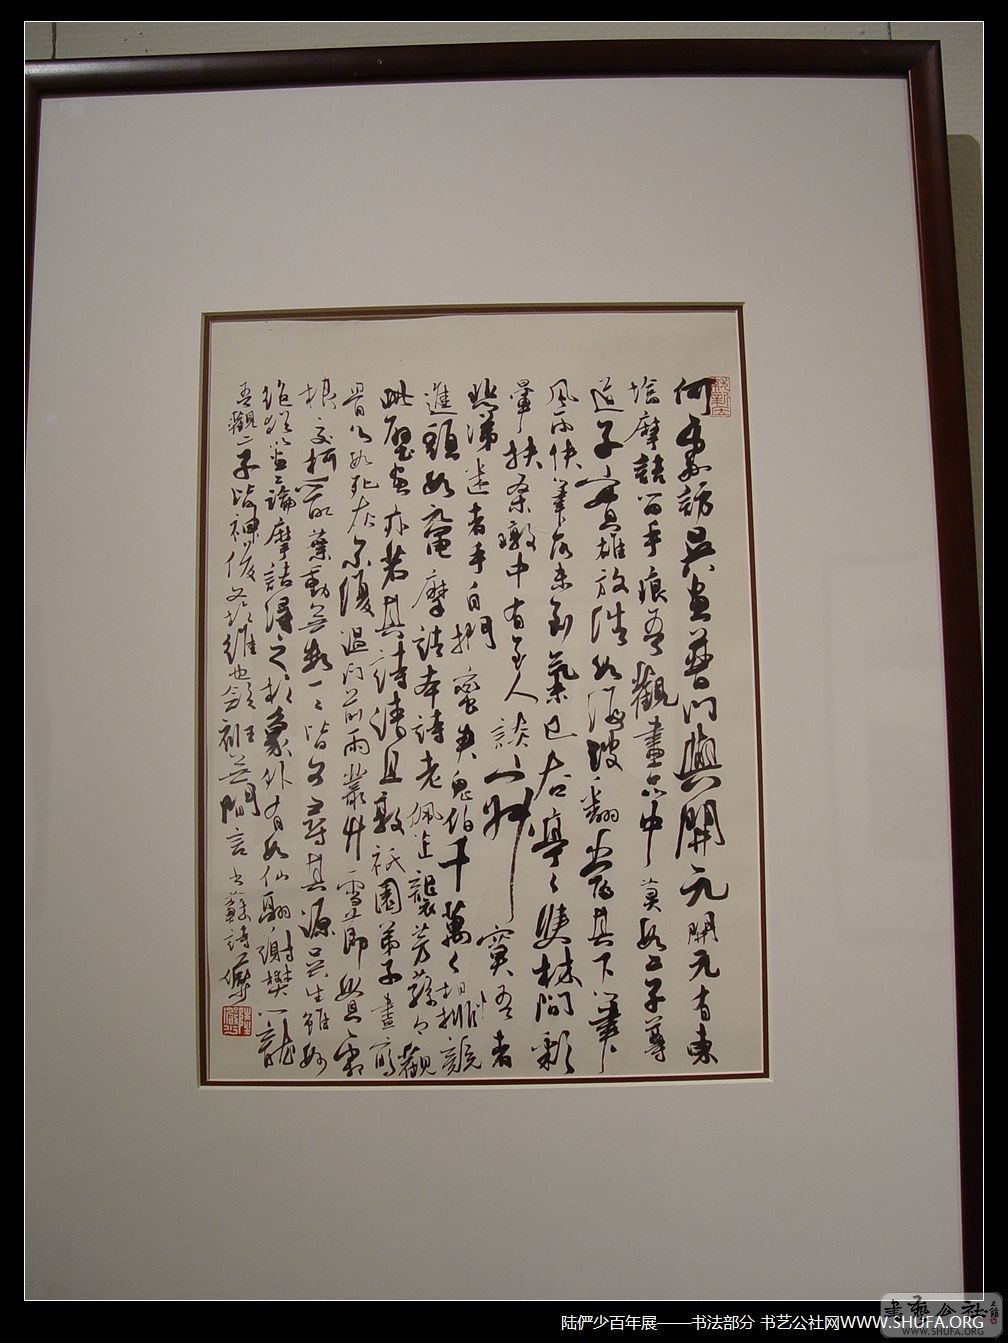 何處訪吳畫普門與開元開元有東
塔摩詰留手痕吾觀畫品中莫如二子尊
道子實雄放浩如海波翻當其下筆
風雨快筆所未到氣已吞亭々雙林間彩
暈扶桑暾中有至人談者
悲涕迷者手自捫蠻鬼伯千萬々相排競
進頭如黿摩詰本詩老佩芷襲芳蓀今觀
此壁畫亦若其詩清且敦祇園弟子盡鶴
骨心如死灰不復溫門前兩叢竹雪節貫霜
根交柯亂葉動無數一々皆可尋其源吳生雖妙
絕猶以畫工論摩詰得之於象外有如仙翮謝樊籠
吾觀二子皆神俊又於維也斂衽無間言書蘇詩
陆俨少百年展——书法部分 书艺公社网WWW.SHUFA.ORG
書藝公社
WWW.SHUFA.ORG